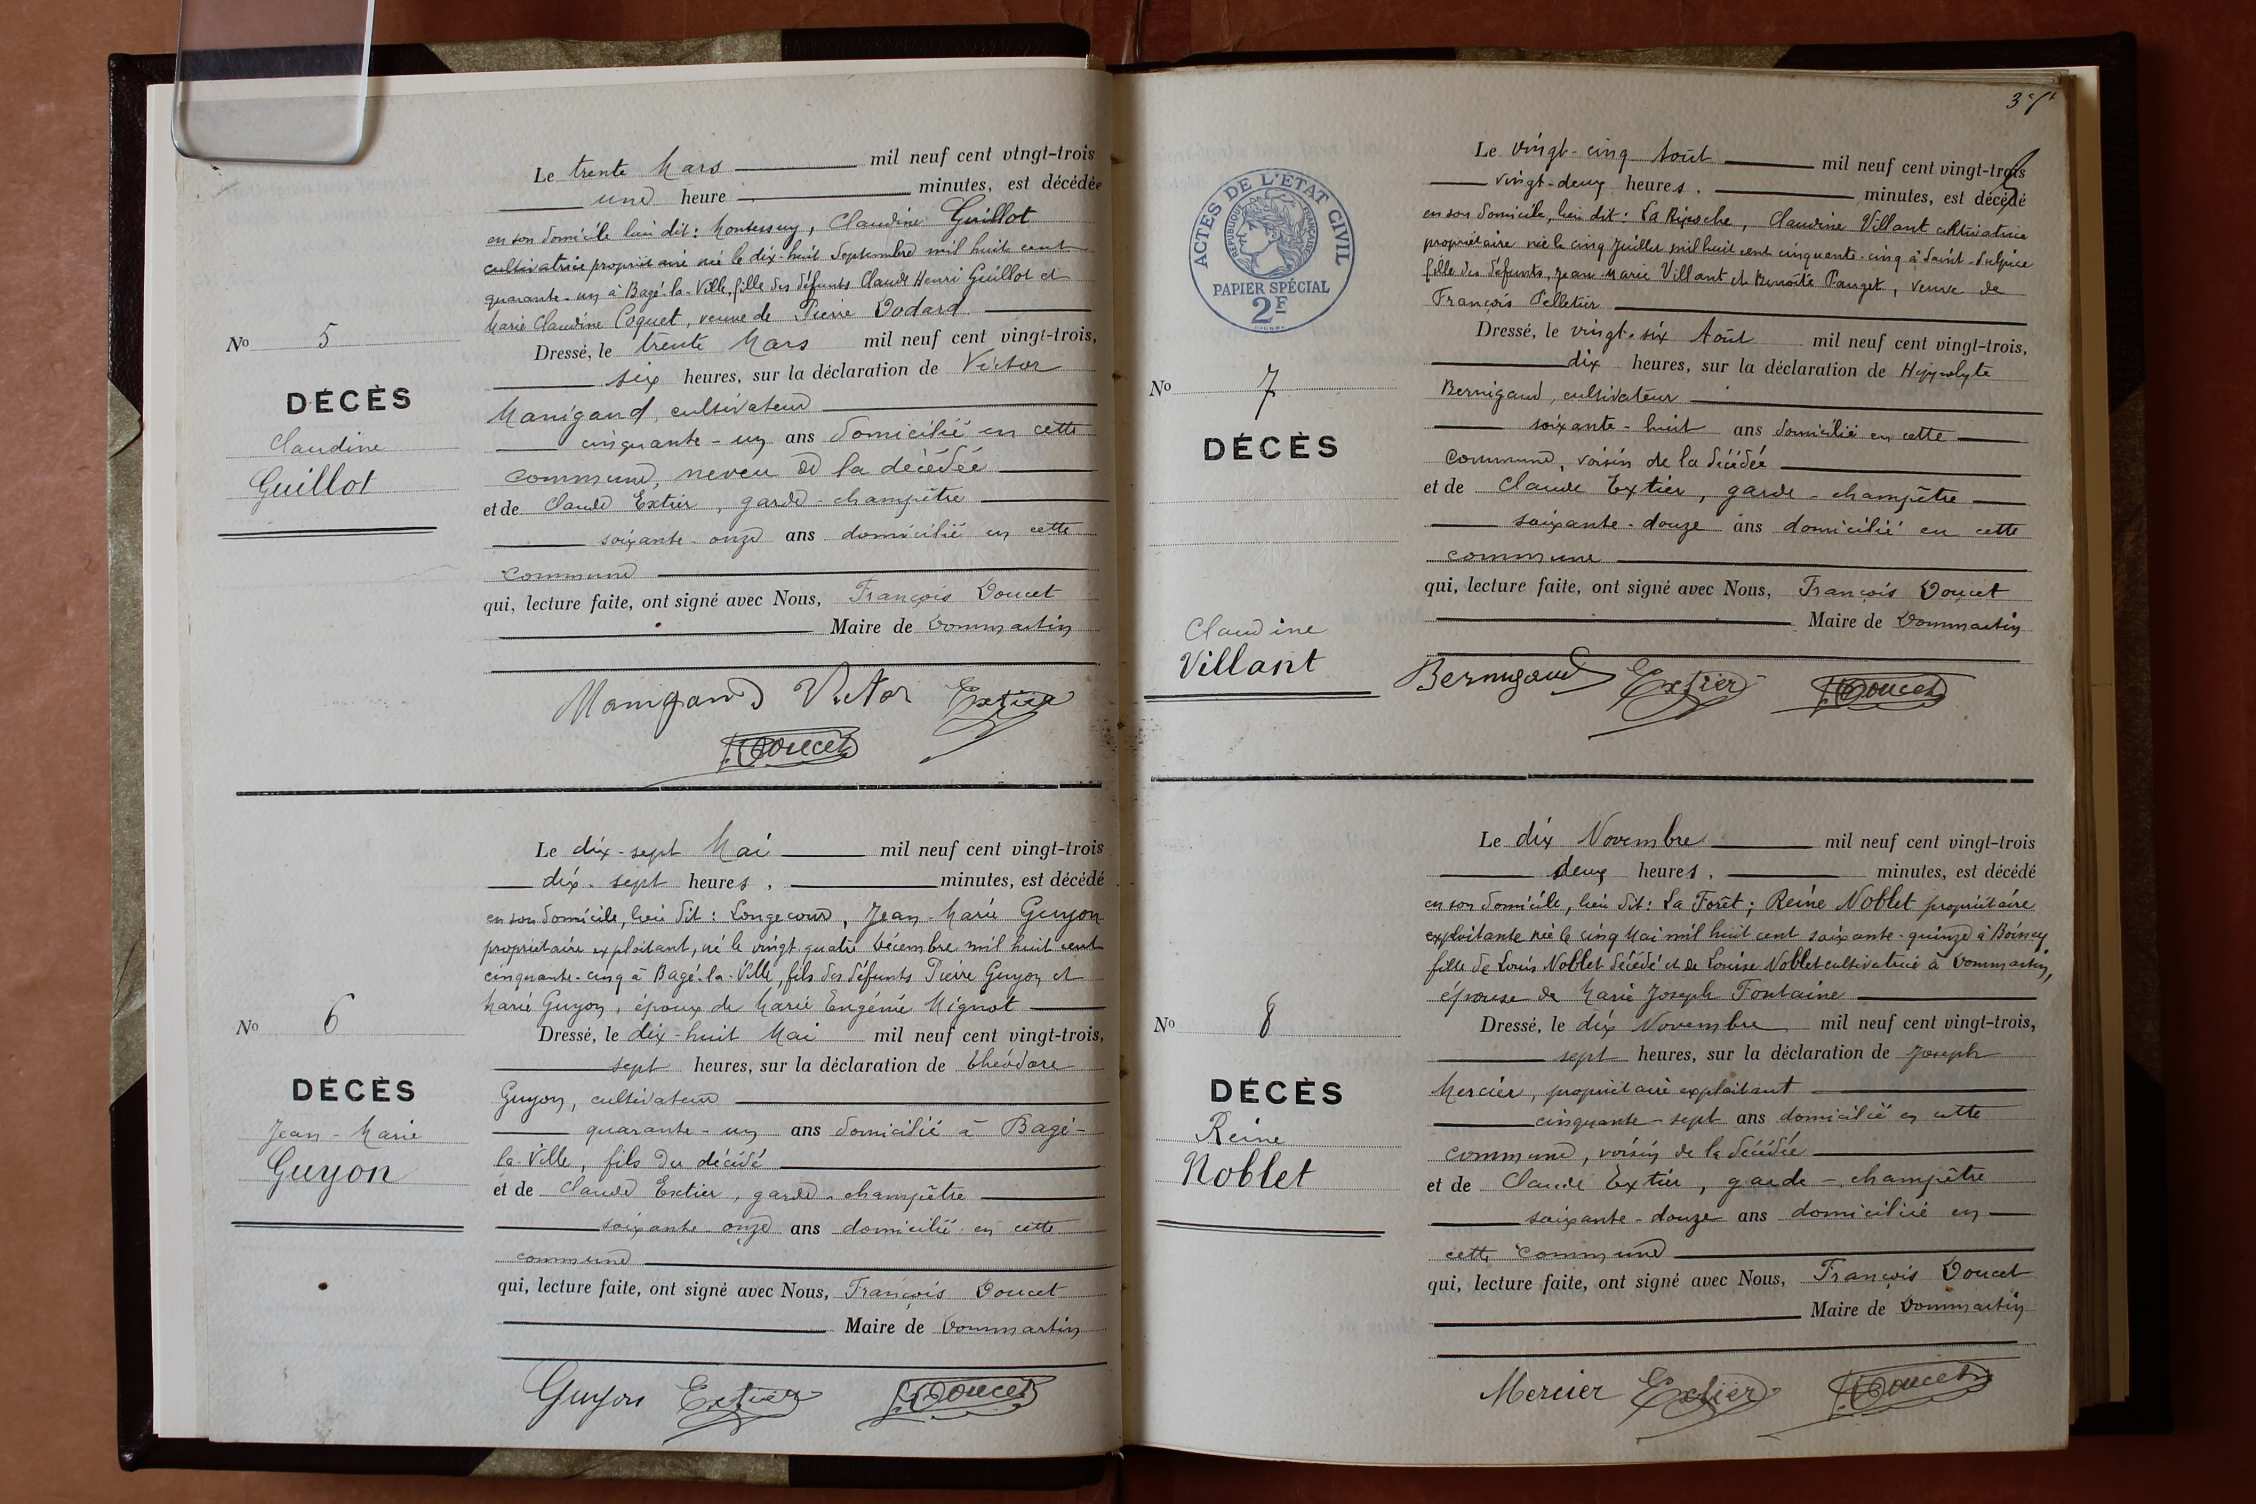 Le trente Mars mil neuf cent vingt-trois
une heure minutes, est décédée
en son domicile lieu dit : Montessuy, Claudine Guillot
cultivatrice propriétaire née le dix-huit Septembre mil huit cent
quarante-un à Bagé-la-Ville, fille des défunts Claude Henri Guillot et
Marie Claudine Coquet, veuve de Pierre Dodard
No 5
Dressé, le trente Mars mil neuf cent vingt-trois,
six heures, sur la déclaration de Victor
DÉCÈS
Manigand, cultivateur
Claudine
cinquante-un ans domicilié en cette
Guillot
commune, neveu de la décédée
et de Claude Extier, garde-champêtre
soixante-onze ans domicilié en cette
commune
qui, lecture faite, ont signé avec Nous, François Doucet
Maire de Dommartin
Manigand Victor Extier
F. Doucet
Le dix-sept Mai mil neuf cent vingt-trois
dix-sept heures, minutes, est décédé
en son domicile, lieu dit : Longecour, Jean-Marie Guyon
propriétaire exploitant, né le vingt quatre Décembre mil huit cent
cinquante-cinq à Bagé-la-Ville, fils des défunts Pierre Guyon et
Marie Guyon, époux de Marie Eugénie Mignot
No 6
Dressé, le dix-huit Mai mil neuf cent vingt-trois,
sept heures, sur la déclaration de Théodore
DÉCÈS
Guyon, cultivateur
Jean-Marie
quarante-un ans domicilié à Bagé-
Guyon
la-Ville, fils du décédé
et de Claude Extier, garde-champêtre
soixante-onze ans domicilié en cette
commune
qui, lecture faite, ont signé avec Nous, François Doucet
Maire de Dommartin
Guyon Extier F. Doucet
ACTES DE L'ETAT CIVIL
RÉPUBLIQUE FRANÇAISE
PAPIER SPÉCIAL
2F
Le vingt-cinq Août mil neuf cent vingt-trois
vingt-deux heures, minutes, est décédé
en son domicile, lieu dit : La Ripoche, Claudine Villant cultivatrice
propriétaire née le cinq Juillet mil huit cent cinquante-cinq à Saint-Sulpice
fille des défunts Jean-Marie Villant et Benoîte Pauget, veuve de
François Pelletier
Dressé, le vingt-six Août mil neuf cent vingt-trois,
dix heures, sur la déclaration de Hippolyte
No 7
Bernigaud, cultivateur
DÉCÈS
soixante-huit ans domicilié en cette
commune, voisin de la décédée
et de Claude Extier, garde-champêtre
soixante-douze ans domicilié en cette
commune
qui, lecture faite, ont signé avec Nous, François Doucet
Claudine
Maire de Dommartin
Villant
Bernigaud Extier F. Doucet
Le dix Novembre mil neuf cent vingt-trois
deux heures, minutes, est décédé
en son domicile, lieu dit : La Forêt ; Reine Noblet propriétaire
exploitante née le cinq Mai mil huit cent soixante-quinze à Boissey
fille de Louis Noblet décédé et de Louise Noblet cultivatrice à Dommartin,
épouse de Marie Joseph Fontaine
No 8
Dressé, le dix Novembre mil neuf cent vingt-trois,
sept heures, sur la déclaration de Joseph
DÉCÈS
Mercier, propriétaire exploitant
Reine
cinquante-sept ans domicilié en cette
Noblet
commune, voisin de la décédée
et de Claude Extier, garde-champêtre
soixante-douze ans domicilié en
cette commune
qui, lecture faite, ont signé avec Nous, François Doucet
Maire de Dommartin
Mercier Extier F. Doucet